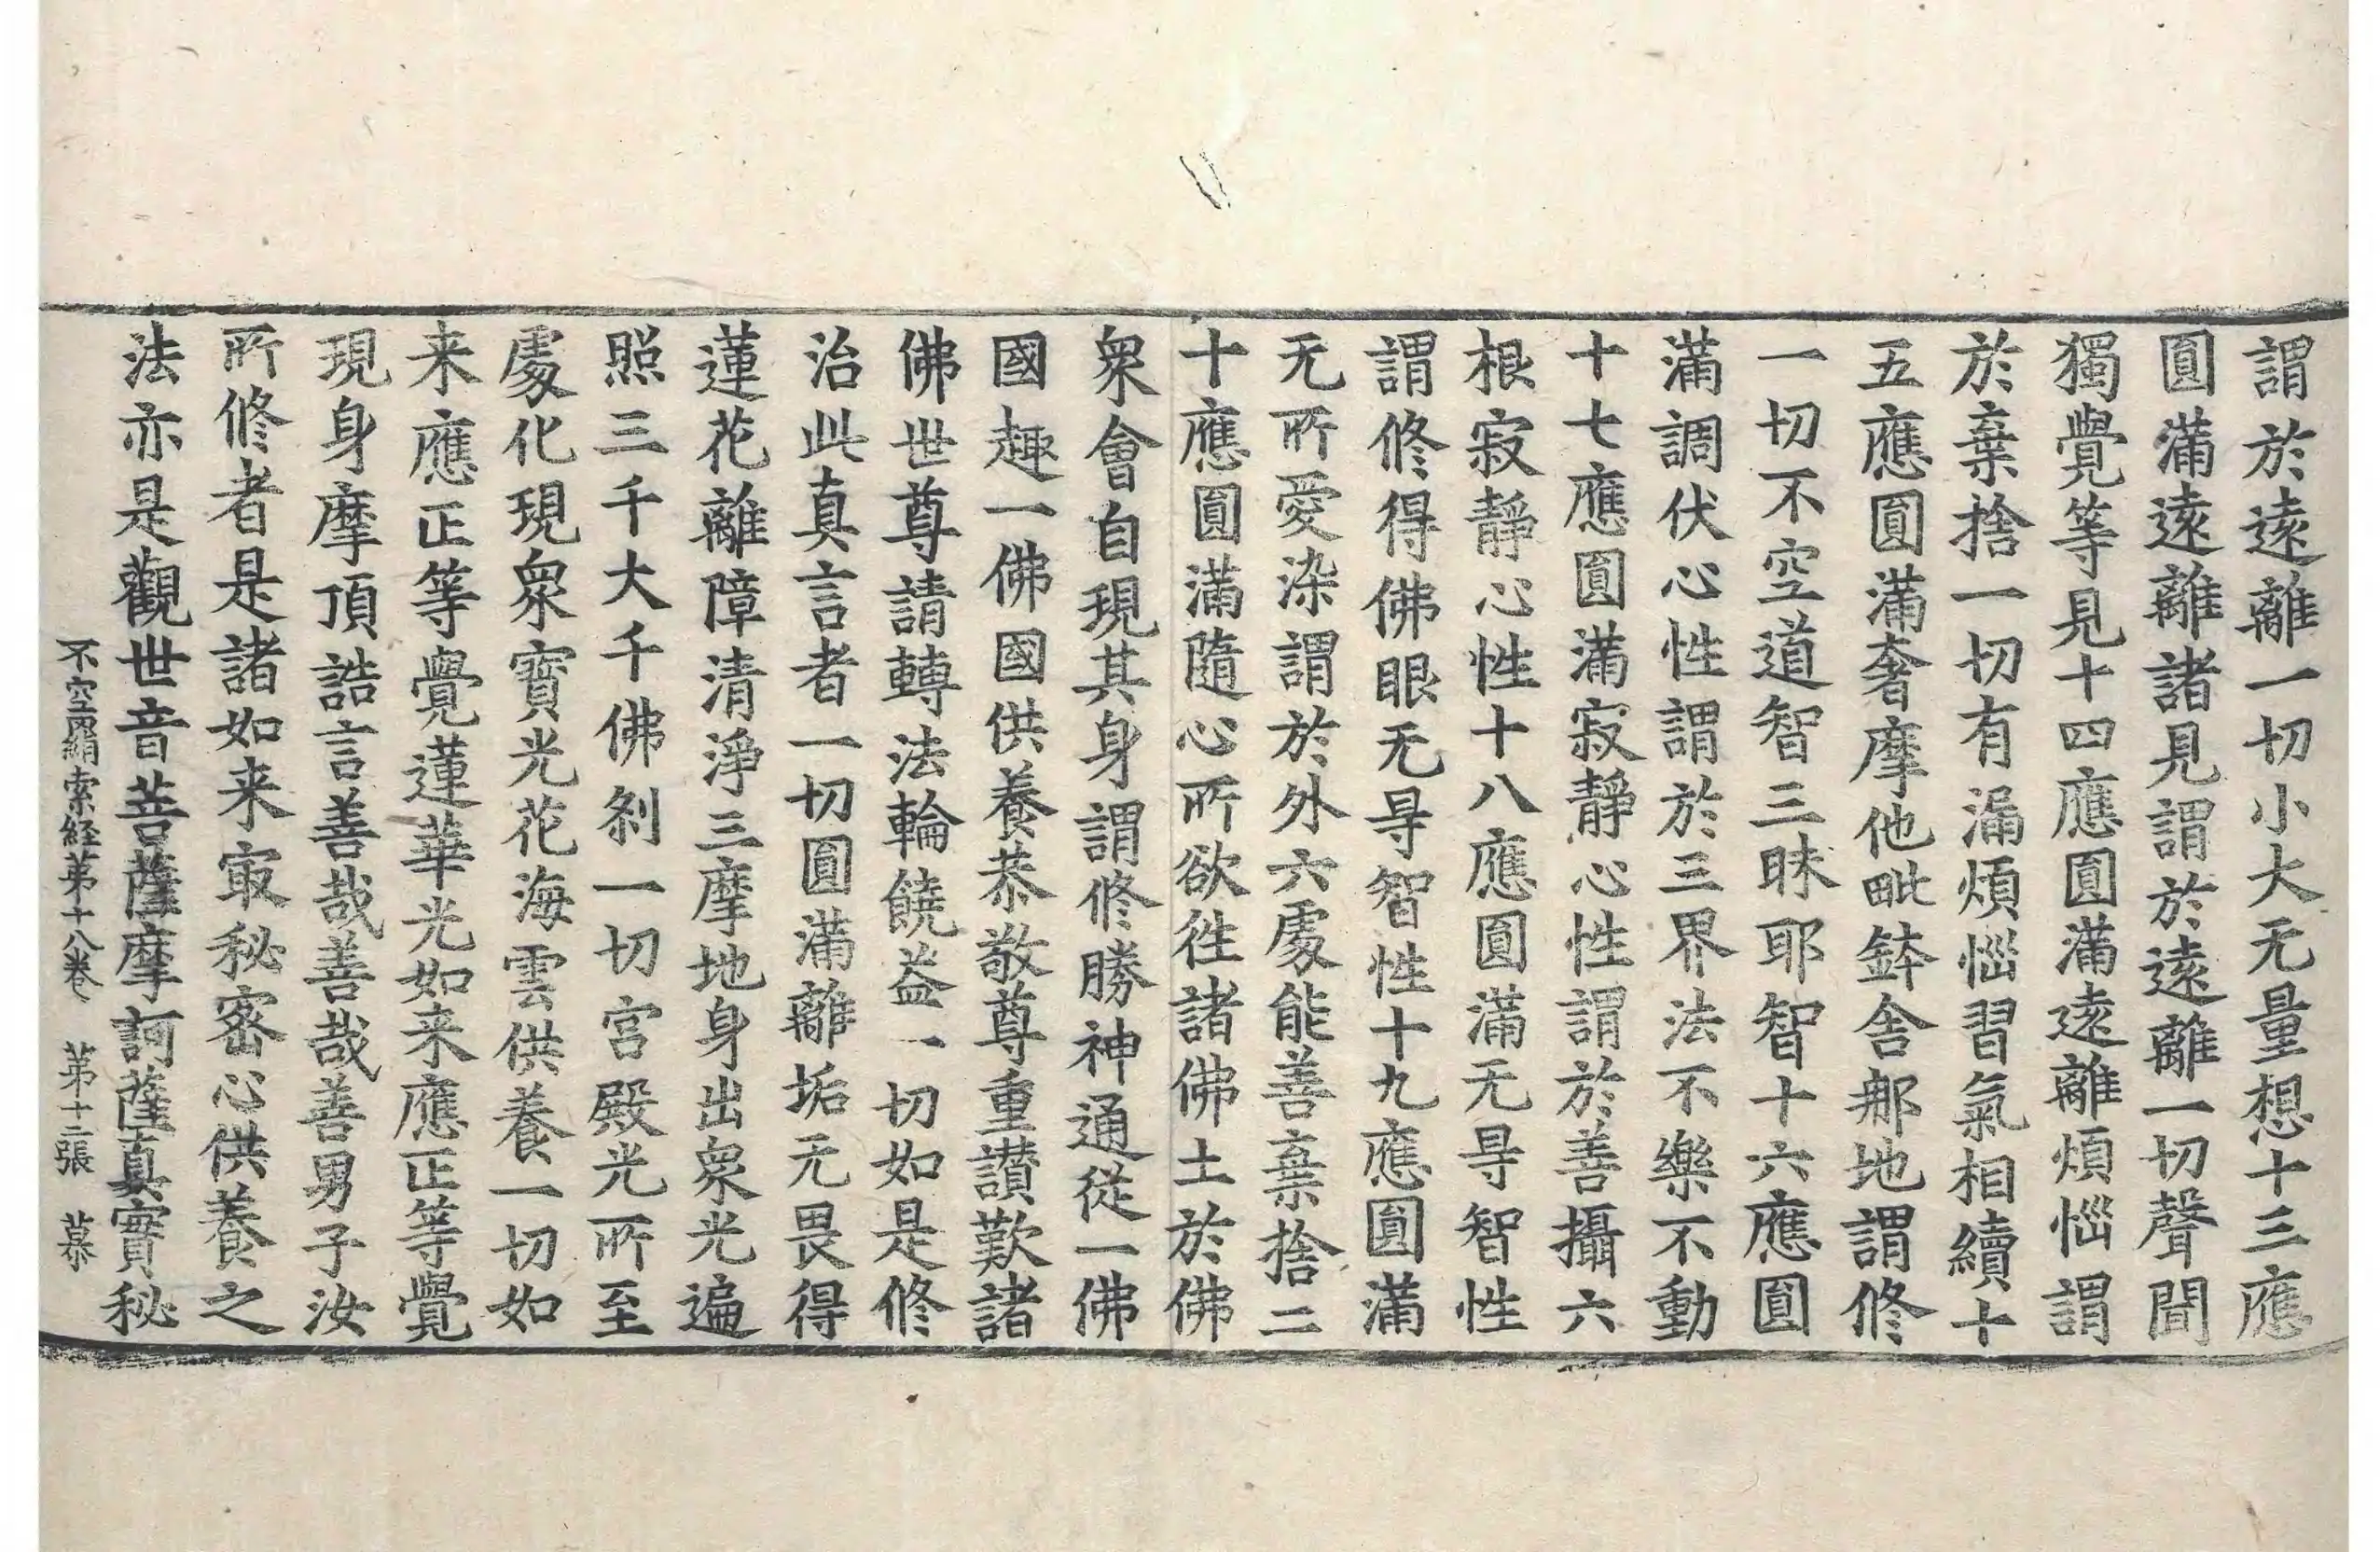 謂於遠離一切小大无量想十三應
圓滿遠離諸見謂於遠離一切聲聞
獨覺等見十四應圓滿遠離煩惱謂
於棄捨一切有漏煩惱習氣相續十
五應圓滿奢摩他毗鉢舍那地謂修
一切不空道智三昧耶智十六應圓
滿調伏心性謂於三界法不樂不動
十七應圓滿寂靜心性謂於善攝六
根寂靜心性十八應圓滿无㝵智性
謂修得佛眼无㝵智性十九應圓滿
无所愛染謂於外六處能善棄捨二
十應圓滿隨心所欲徃諸佛土於佛
衆會自現其身謂修勝神通從一佛
國趣一佛國供養恭敬尊重讃歎諸
佛世尊請轉法輪饒益一切如是修
治此真言者一切圓滿離垢无畏得
蓮花離障清淨三摩地身出衆光遍
照三千大千佛刹一切宫殿光所至
處化現衆寶光花海雲供養一切如
来應正等覺蓮華光如来應正等覺
現身摩頂誥言善哉善哉善男子汝
所修者是諸如来㝡秘密心供養之
法亦是觀世音菩薩摩訶薩真實秘
不空羂索経苐十八卷 苐十二張 慕